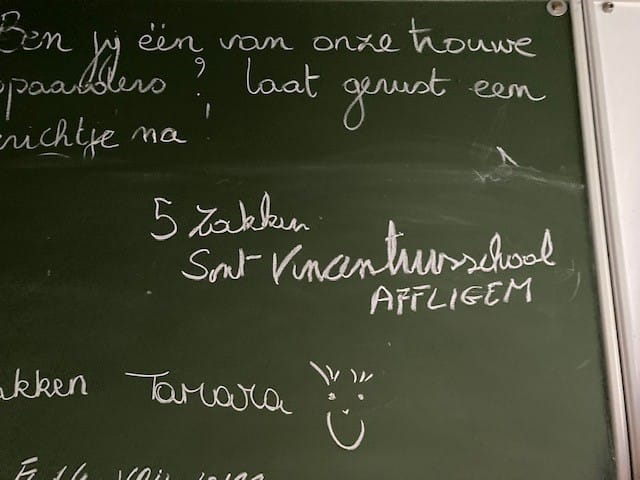 Ben jij één van onze trouwe
spaarders? laat gerust een
richtje na!
5 zakken
Sint-Vincentiusschool
AFFLIGEM
akken Tamara